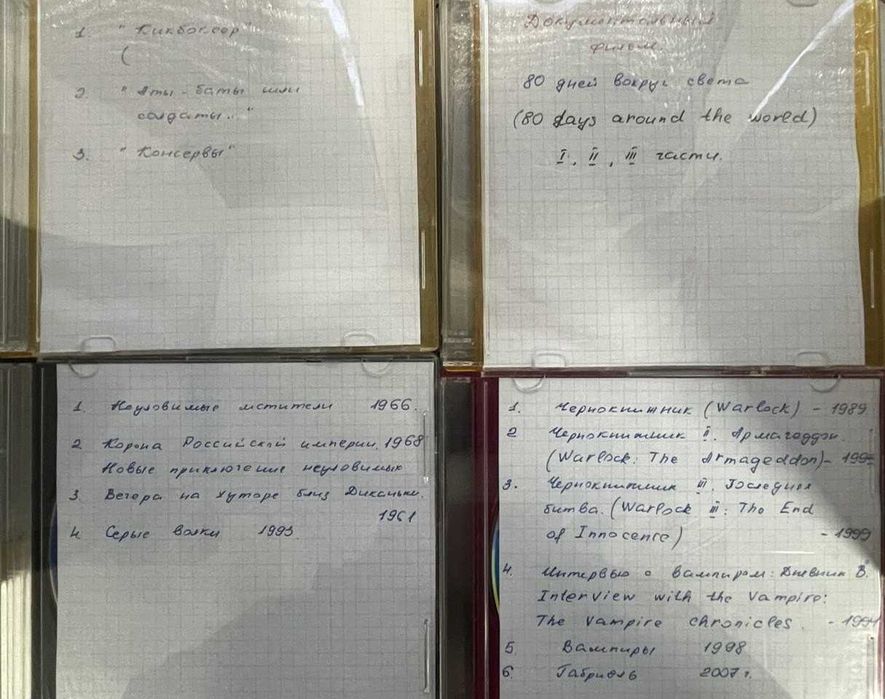 1. "Кикбоксер"
(
2. "Аты-баты шли
солдаты.."
3. "Консервы"
Документальный
фильм.
80 дней вокруг света
(80 days around the world)
I, II, III части.
1. Неуловимые мстители 1966.
2 Корона Российской империи. 1968
Новые приключение неуловимых
3. Вечера на хуторе близ Диканьки.
1961
4. Серые волки 1993.
1. Чернокнижник (Warlock) - 1989
2 Чернокнижник II. Армагеддон.
(Warlock: The Armageddon) -
3. Чернокнижник III. Последняя
битва. (Warlock III: The End
of Innocence) - 1999
4. Интервью с вампиром: Дневник В.
Interview with the Vampire:
The Vampire chronicles. - 1994
5 Вампиры 1998
6. Габриэль 2007г.